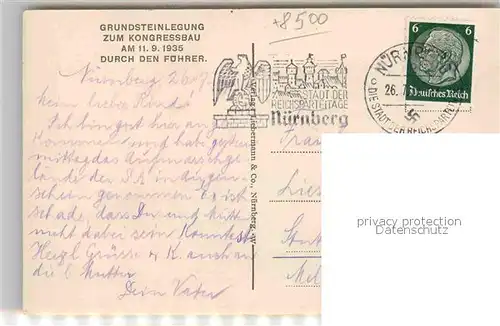 GRUNDSTEINLEGUNG
ZUM KONGRESSBAU
AM 11. 9. 1935
DURCH DEN FÜHRER.
+8500
Nürnberg 26. 7.
Mein liebes Kind!
Ich bin gut hier an-
kommen und habe gestern
mittag das Aufmarschge-
lände der SA in Augen-
schein genommen. Es ist
schade, dass Du und Mutter
nicht dabei sein konntest.
Herzl. Grüsse u. K. auch an
die l. Mutter
Dein Vater
DIE STADT DER
REICHSPARTEITAGE
Nürnberg
6 6
Deutsches Reich
NÜRNBERG
26. 7.
DIE STADT DER REICHSPARTEIT
Liebermann & Co., Nürnberg-W
Frau
Lies
Stut
Mel
privacy protection